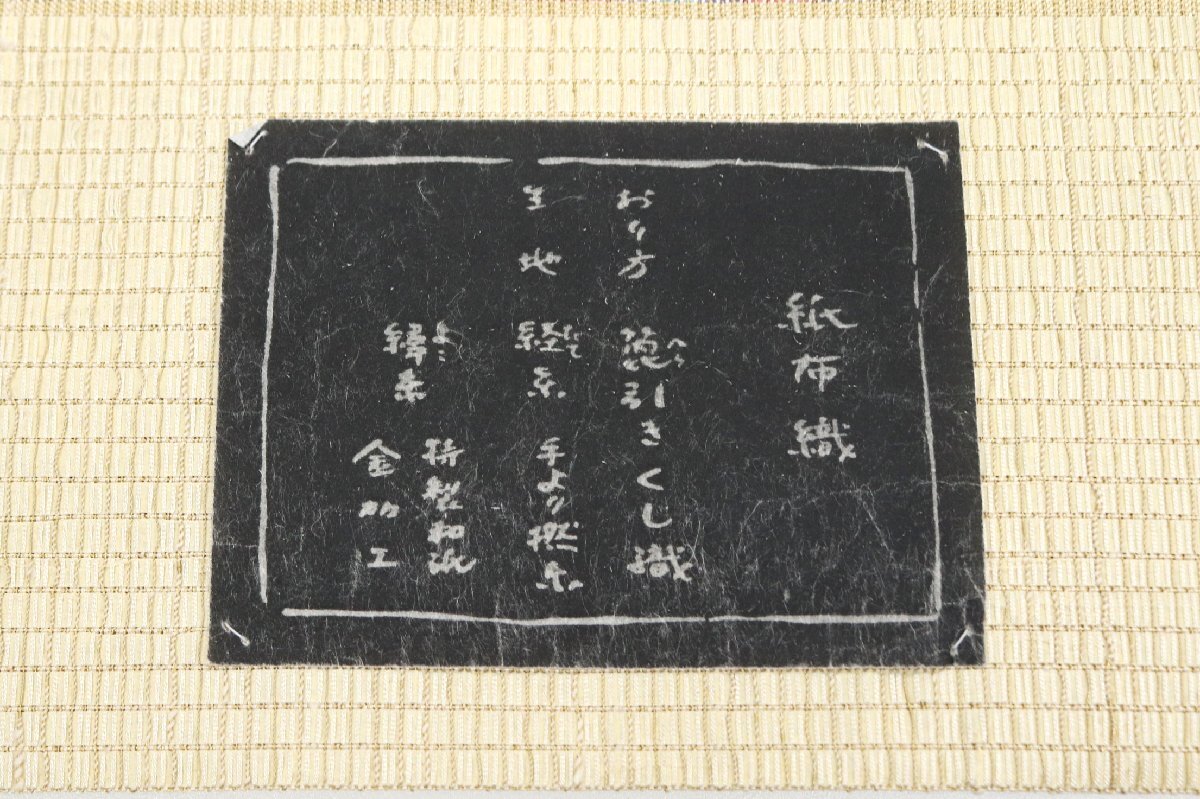 紙布織
おり方 箆引きくじ織
へら
生地 経糸 手より撚糸
たて
緯糸 特製和紙
よこ
金加工